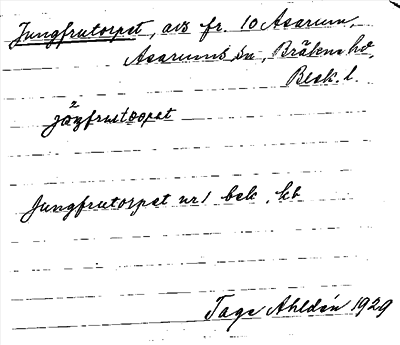 Jungfrutorpet, avs fr. 10 Asarum,
Asarums sn, Bräkne hd,
Blek. l.
Jungfrutorpet nr 1 bek. kb
Tage Ahldén 1929